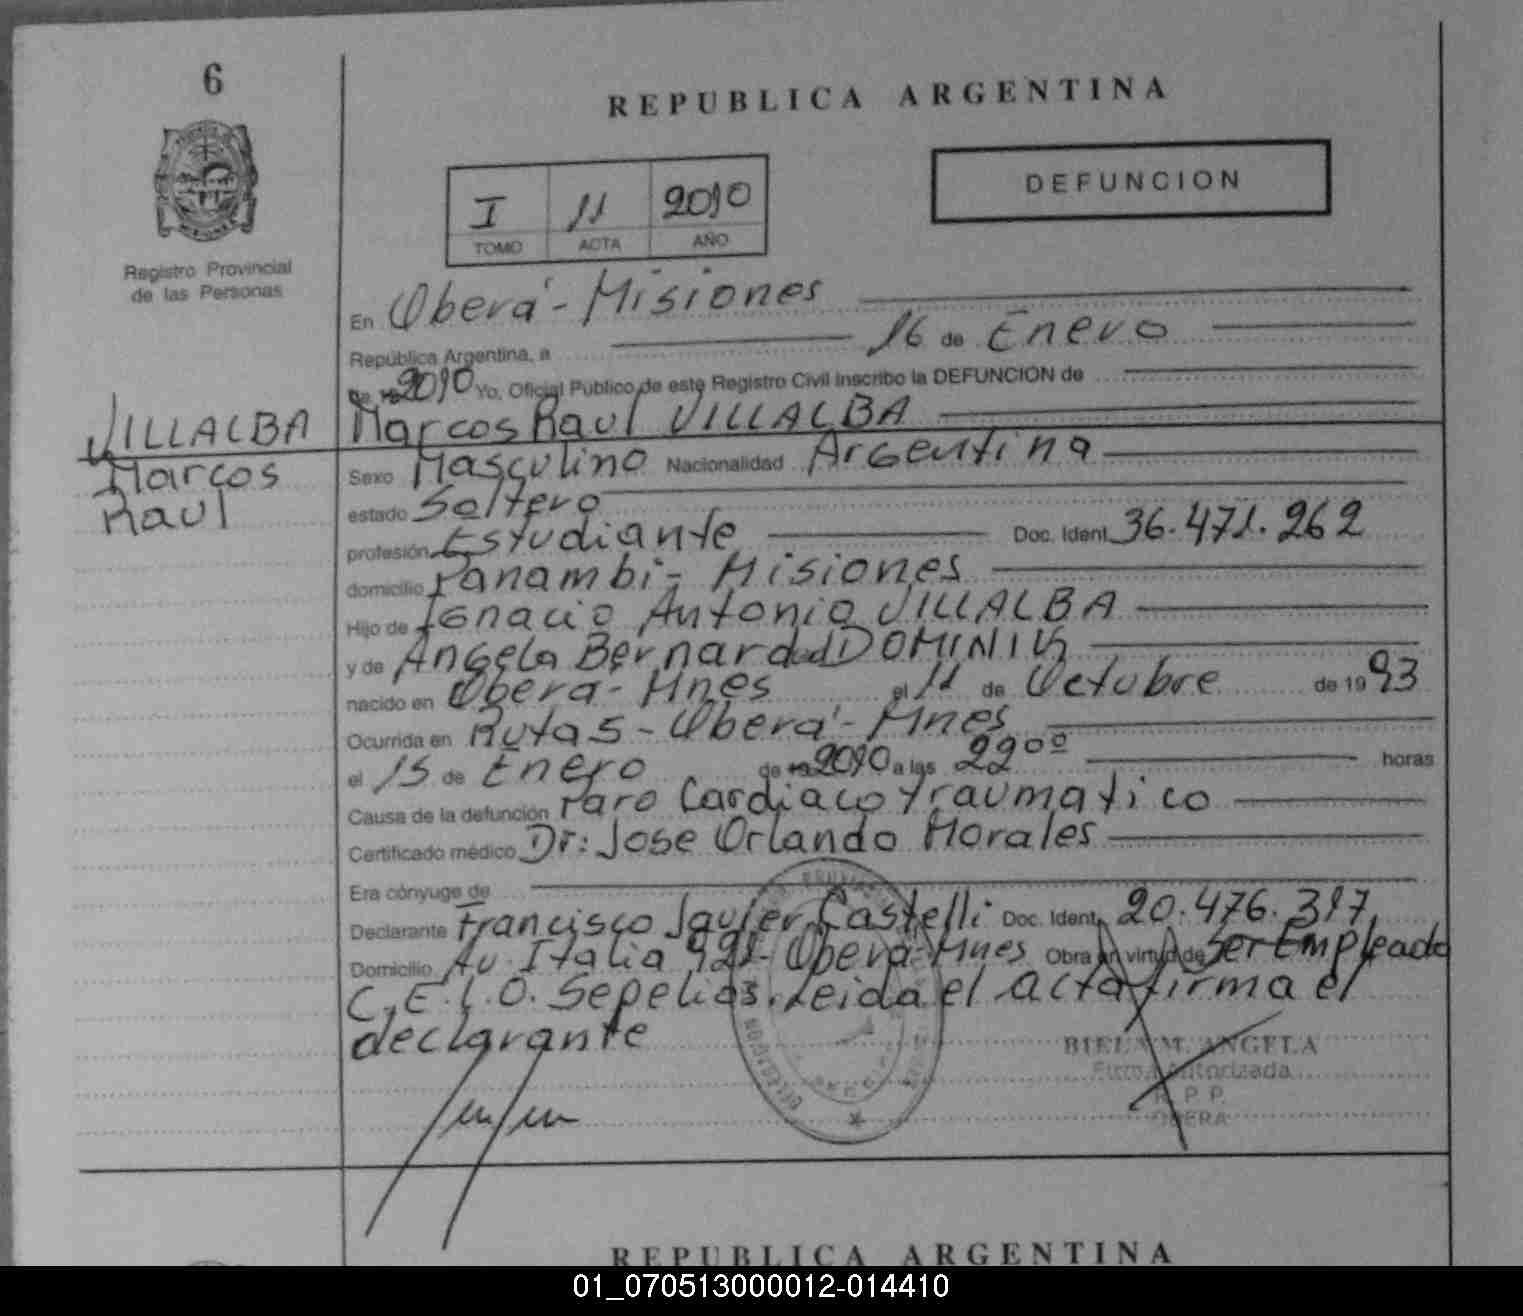 6
REPUBLICA ARGENTINA
DEFUNCION
I 11 2010
TOMO ACTA AÑO
Registro Provincial
de las Personas
En Oberá - Misiones
República Argentina, a 16 de Enero
de 2010 Yo, Oficial Público de este Registro Civil inscribo la DEFUNCION de
VILLALBA Marcos Raul VILLALBA
Marcos
Raul
Sexo Masculino Nacionalidad Argentina
estado Soltero
profesión Estudiante Doc. Ident. 36.471.262
domicilio Panambi - Misiones
Hijo de Ignacio Antonio VILLALBA
y de Angela DOMINIK
nacido en Obera - Mnes el 11 de Octubre de 1993
Ocurrida en Ruta 5 - Oberá - Mnes
el 15 de Enero de 2010 a las 22ºº horas
Causa de la defunción Paro Cardiaco traumatico
Certificado médico Dr: Jose Orlando Morales
Era cónyuge de
Declarante Francisco Javier Castelli Doc. Ident. 20.476.317
Domicilio Av. Italia 921 - Obera - Mnes Obra en virtud de Ser Empleado
C.E.L.O. Sepelios. Leida el Acta firma el
declarante
BIELA M. ANGELA
Firma Autorizada
R. P. P.
OBERA
REPUBLICA ARGENTINA
01_070513000012-014410